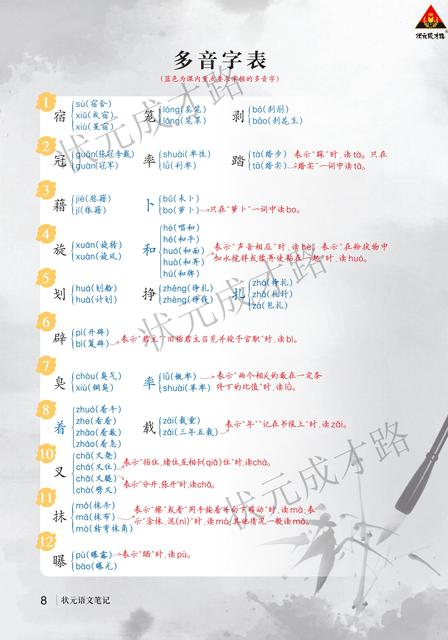 状元成才路
多音字表
(蓝色为课内重点要求掌握的多音字)
1
宿 sù(宿舍) xiǔ(载宿) xiù(星宿)
笼 lóng(灯笼) lǒng(笼罩)
剥 bō(剥削) bāo(剥花生)
2
冠 guān(张冠李戴) guàn(冠军)
率 shuài(率性) lǜ(利率)
踏 tà(踏步) tā(踏实)
表示“踩”时,读tà。只在“踏实”一词中读tā。
3
藉 jiè(慰藉) jí(狼藉)
卜 bǔ(未卜) bo(萝卜)
只在“萝卜”一词中读bo。
4
旋 xuán(旋转) xuàn(旋风)
和 hè(唱和) hé(和平) huó(和面) huò(和弄) hú(和牌)
表示“声音相应”时,读hè。表示“在粉状物中加水搅拌或揉弄使黏在一起”时,读huó。
5
划 huá(划船) huà(计划)
挣 zhēng(挣扎) zhèng(挣钱)
扎 zhá(挣扎) zhā(扎针) zā(包扎)
6
辟 pì(开辟) bì(复辟)
表示“君主”“旧指君主召见并授予官职”时,读bì。
7
臭 chòu(臭气) xiù(铜臭)
率 lǜ(概率) shuài(草率)
表示“两个相关的数在一定条件下的比值”时,读lǜ。
8
着 zhuó(着手) zhe(看着) zhāo(着数) zháo(着急)
载 zài(载重) zǎi(三年五载)
表示“年”“记在书报上”时,读zǎi。
10
叉 chā(交叉)
chǎ(叉腿)
chà(劈叉)
表示“挡住,堵住,互相卡(qiǎ)住”时,读chá。
表示“分开,张开”时,读chǎ。
11
抹 mǒ(抹杀) mā(抹布) mò(转弯抹角)
表示“擦”或者“用手按着并向下移动”时,读mā;表示“涂抹,泥(nì)”时,读mò;其他情况一般读mǒ。
12
曝 pù(曝露) bào(曝光)
表示“晒”时,读pù。
8 状元语文笔记
状元成才路
状元成才路
状元成才路